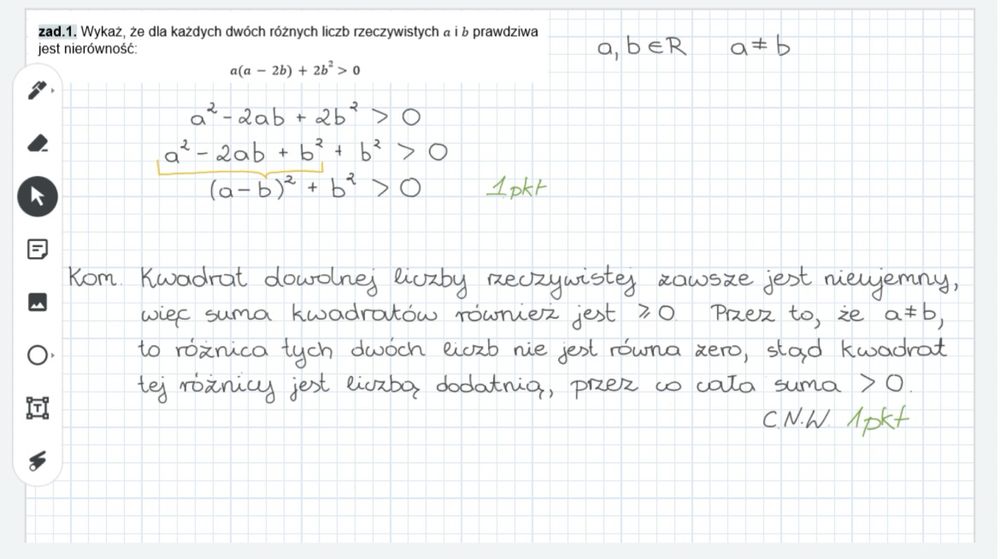 zad.1. Wykaż, że dla każdych dwóch różnych liczb rzeczywistych a i b prawdziwa
jest nierówność:
a(a − 2b) + 2b² > 0
a, b ∈ R   a ≠ b
a² - 2ab + 2b² > 0
a² - 2ab + b² + b² > 0
(a-b)² + b² > 0   1pkt
Kom. Kwadrat dowolnej liczby rzeczywistej zawsze jest nieujemny,
więc suma kwadratów również jest ⩾ 0. Przez to, że a≠b,
to różnica tych dwóch liczb nie jest równa zero, stąd kwadrat
tej różnicy jest liczbą dodatnią, przez co cała suma > 0.
C.N.W. 1pkt